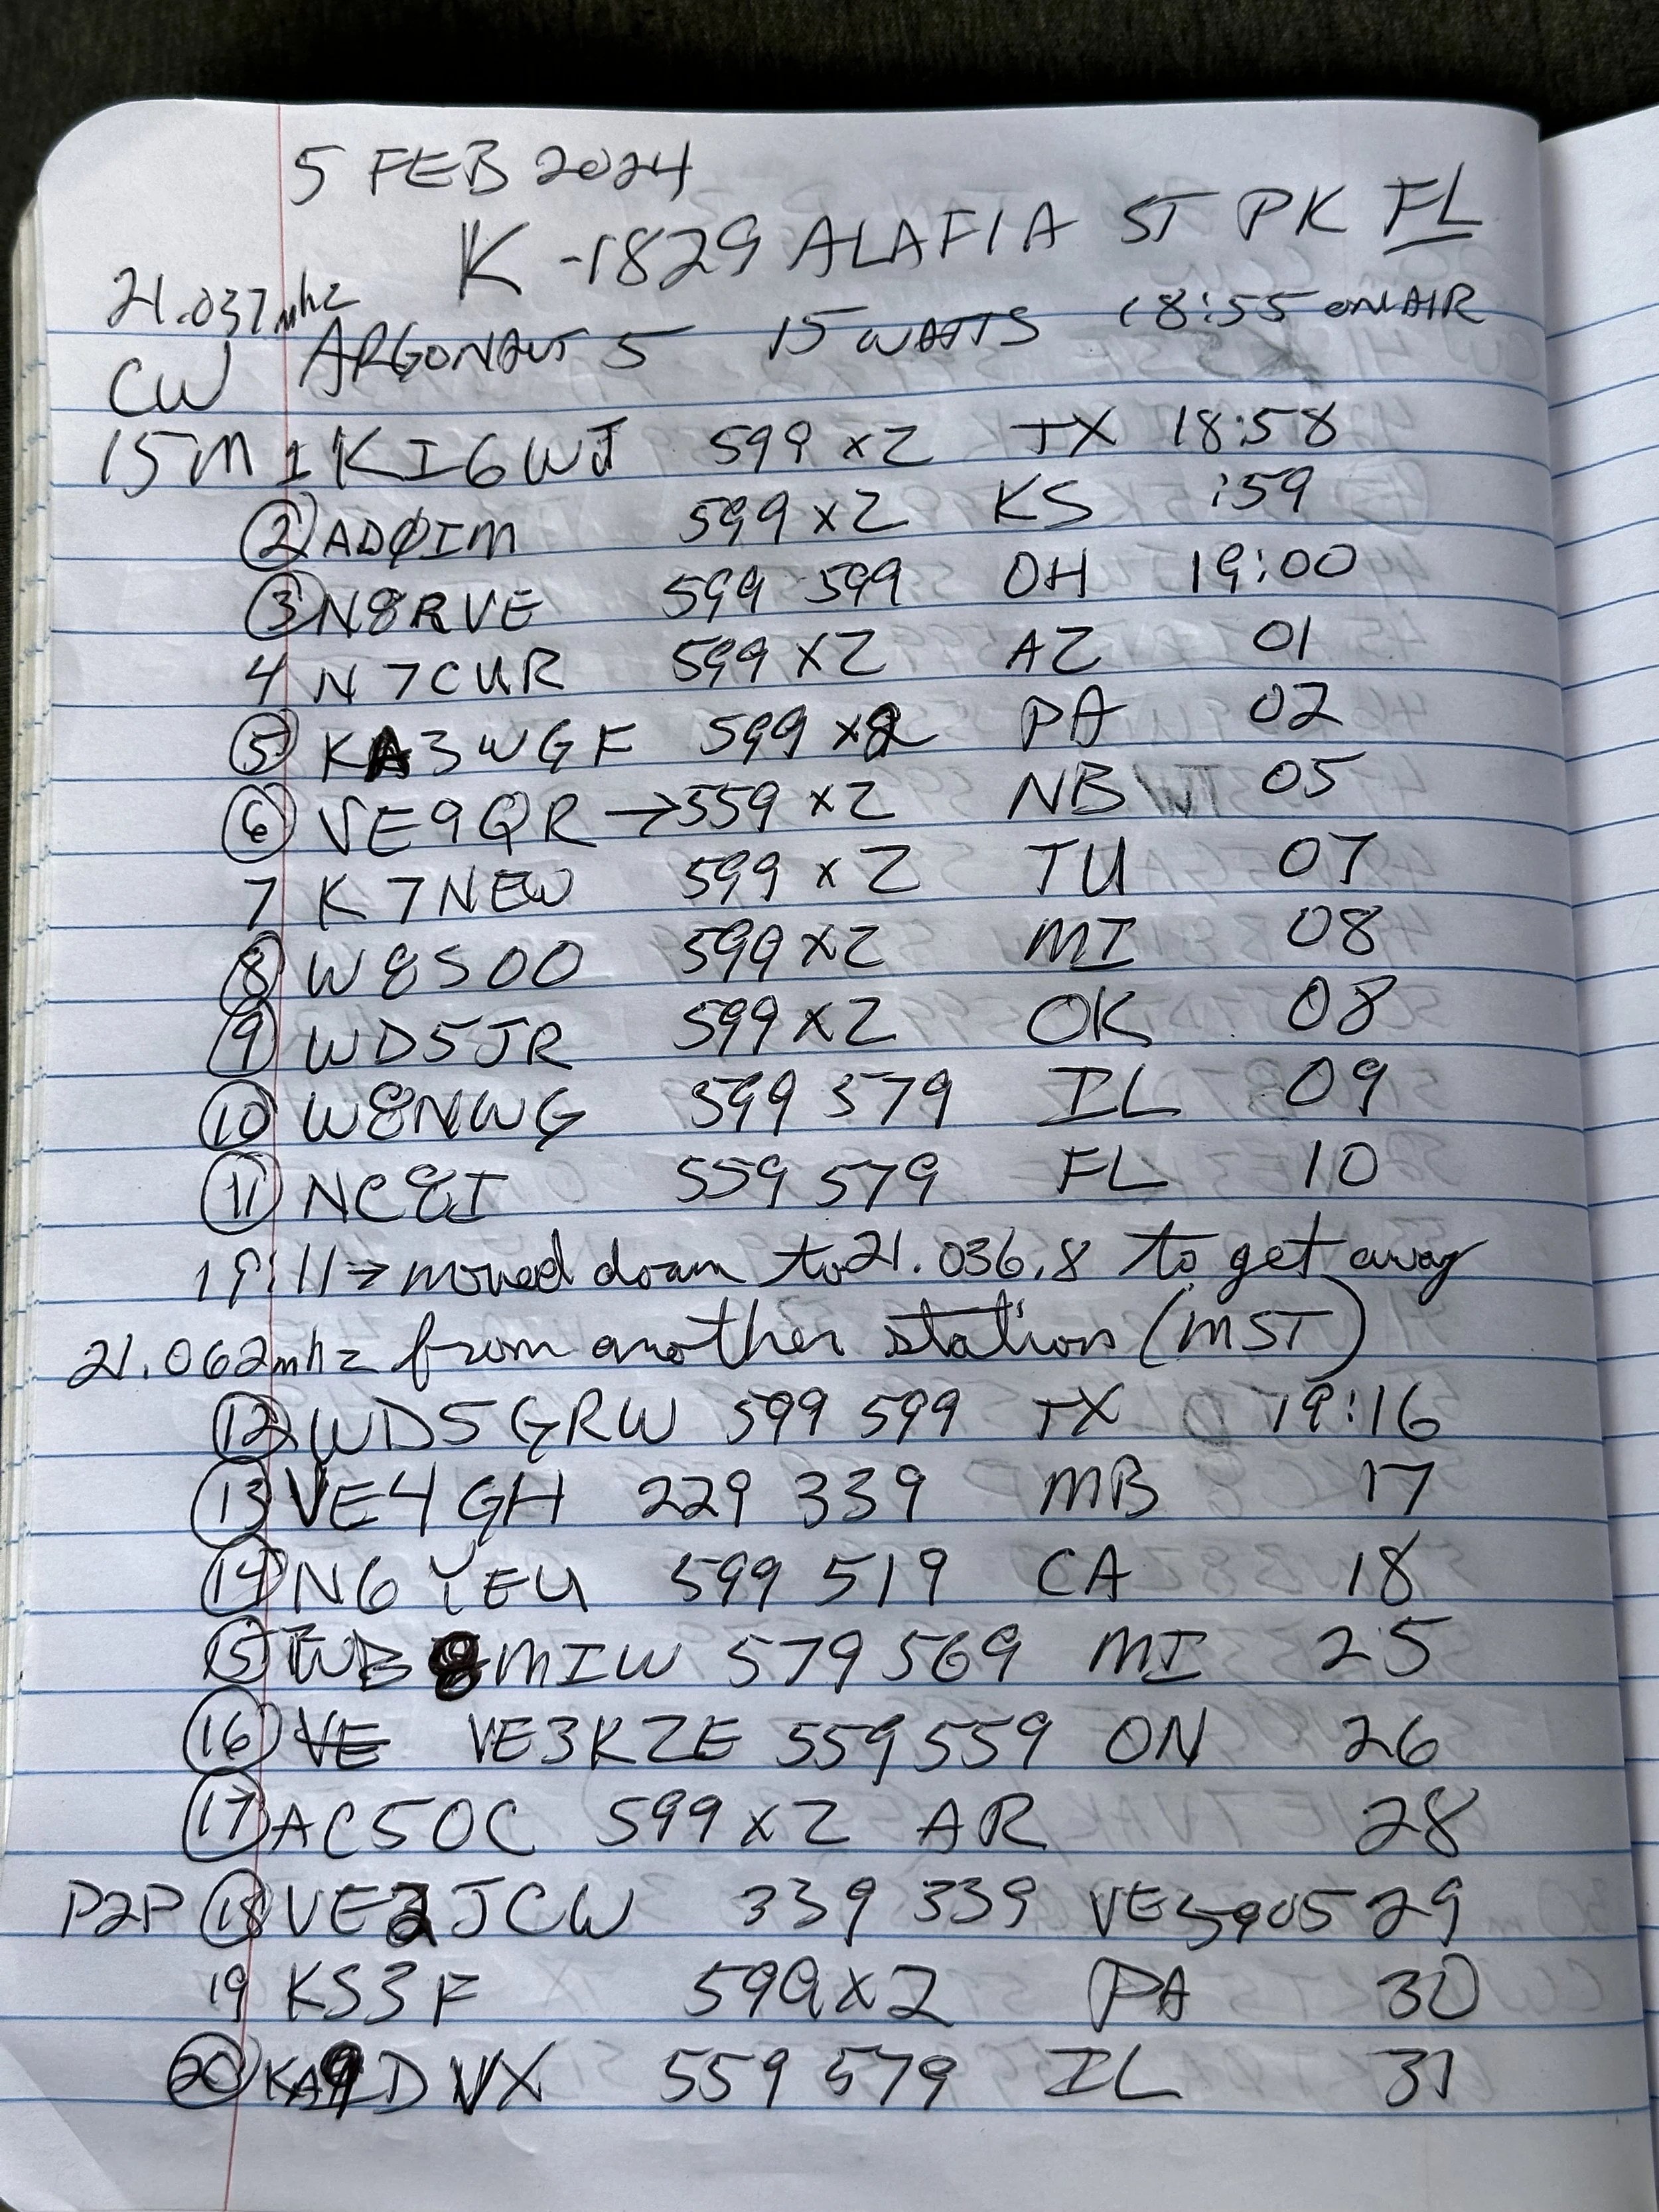 5 FEB 2024
K-1829 ALAFIA ST PK FL
21.037mhz
CW ARGONAUT 5 15 WATTS 18:55 ON AIR
15M 1 KI6WJ 599 x2 TX 18:58
2 ADØIM 599 x2 KS :59
3 N8RVE 599 599 OH 19:00
4 N7CUR 599 x2 AZ 01
5 KA3WGF 599 x2 PA 02
6 VE9QR → 559 x2 NB 05
7 K7NEW 599 x2 TU 07
8 W8SOO 599 x2 MI 08
9 WD5JR 599 x2 OK 08
10 W8NWG 599 579 IL 09
11 NC8I 559 579 FL 10
19:11 → moved down to 21.036.8 to get away
21.062mhz from another station (MST)
12 WD5GRW 599 599 TX 19:16
13 VE4GH 229 339 MB 17
14 N6YEU 599 519 CA 18
15 WB8MIW 579 569 MI 25
16 VE VE3KZE 559 559 ON 26
17 AC5OC 599 x2 AR 28
P2P 18 VE2JCW 339 339 VE5905 29
19 KS3F 599 x2 PA 30
20 KA9DVX 559 579 IL 31